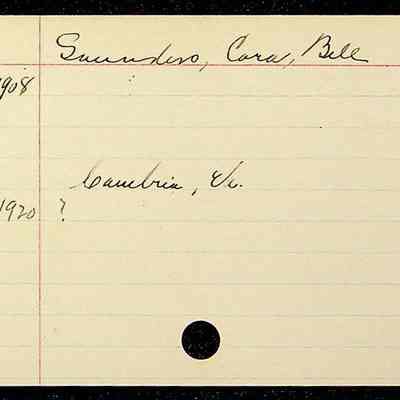 Saunders, Cora, Bell
1908
Cambria, Va.
1920 ?